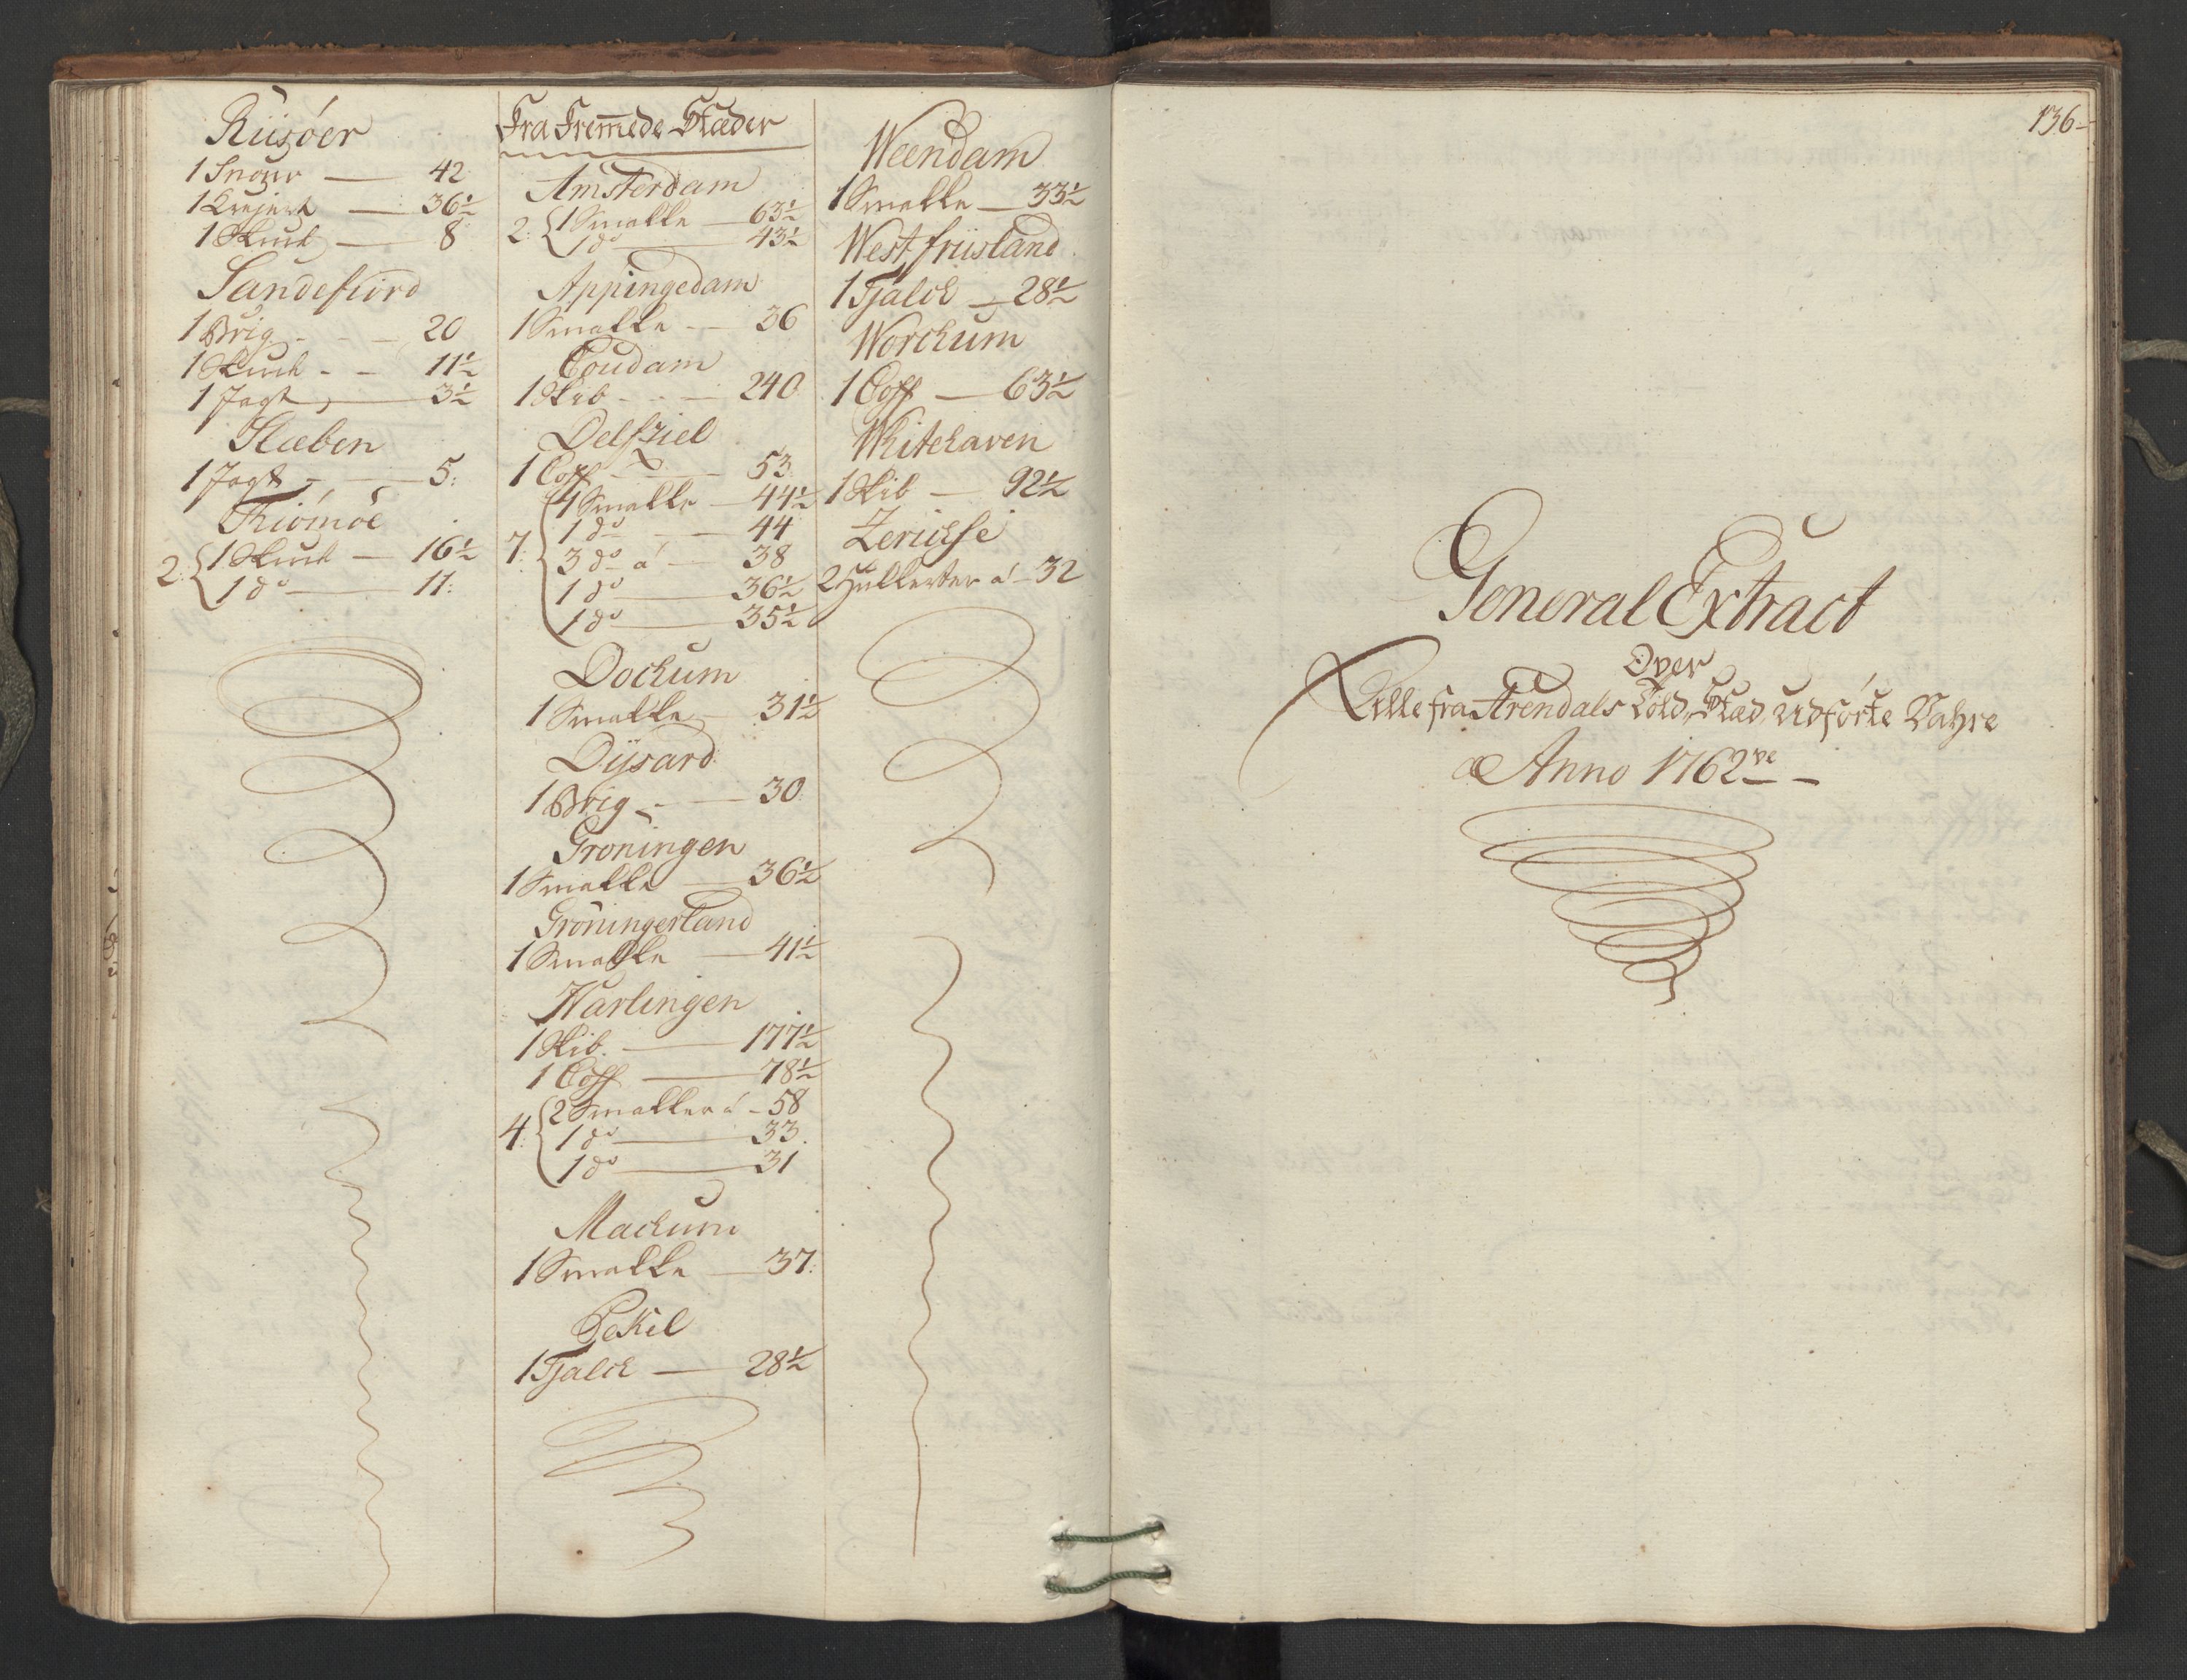 Riisöer
1 Snau — 42
1 Krejert — 36½
1 Skude — 8
Sandefiord
1 Brig — 20
1 Skude — 11½
1 Jagt — 3½
Slæben
1 Jagt — 5:
Tiömöe
2: 1 Skude — 16½
1 do — 11:
Fra Fremede Stæder
Amsterdam
2: 1 Smakke — 63½
1 do — 43½
Appingedam
1 Smakke — 36
Coudam
1 Skib — 240
Delfziel
1 Coff — 53
7: 1 Smakke — 44½
1 do — 44
3 do á — 38
1 do — 36½
1 do — 35½
Dockum
1 Smakke — 31½
Dÿsard
1 Brig — 30
Gröningen
1 Smakke — 36½
Gröningerland
1 Smakke — 41½
Harlingen
1 Skib — 177½
1 Coff — 78½
4: 2 Smakker á — 58
1 do — 33
1 do — 31
Mackum
1 Smakke — 37:
Pekel
1 Tjalck — 28½
Weendam
1 Smakke — 33½
Westfriisland
1 Tjalck — 28½
Worckum
1 Coff — 63½
Whitehaven
1 Skib — 92½
Zerickse
2 Hukkerter á — 32
136
General Extract
Over
Alle fra Arendals Told-Stæd Udförte Vahre
Anno 1762